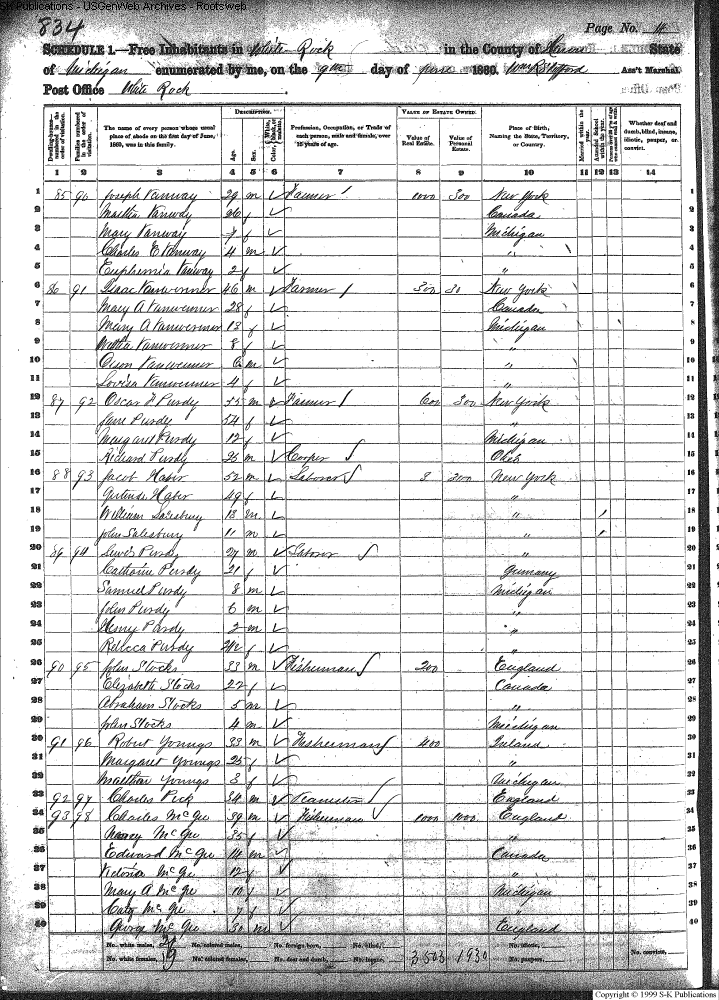 S-K Publications - USGenWeb Archives - Rootsweb
834
Page No.
SCHEDULE 1.—Free Inhabitants in White Rock in the County of Huron State
of Michigan enumerated by me, on the 9th day of June 1860. Ass't Marshal.
Post Office White Rock
Dwelling-houses—numbered in the order of visitation.
Families numbered in the order of visitation.
The name of every person whose usual place of abode on the first day of June, 1860, was in this family.
DESCRIPTION.
Age.
Sex.
Color, White, black, or mulatto.
Profession, Occupation, or Trade of each person, male and female, over 15 years of age.
VALUE OF ESTATE OWNED.
Value of Real Estate.
Value of Personal Estate.
Place of Birth, Naming the State, Territory, or Country.
Married within the year.
Attended School within the year.
Whether deaf and dumb, blind, insane, idiotic, pauper, or convict.
1 2 3 4 5 6 7 8 9 10 11 12 13 14
1 85 90 Joseph Vanway 29 m Farmer 1000 300 New York 1
2 Martha Vanway 26 f Canada 2
3 Mary Vanway 7 f Michigan 3
4 Charles E Vanway 4 m " 4
5 Euphemia Vanway 2 f " 5
6 86 91 Isaac Vanwermer 46 m Farmer 300 30 New York 6
7 Mary A Vanwermer 28 f Canada 7
8 Mary A Vanwermer 13 f Michigan 8
9 Vanwermer 8 f " 9
10 Vanwermer 6 m " 10
11 Lovisa Vanwermer 4 f " 11
12 87 92 Oscar Purdy 55 m Farmer 600 300 New York 12
13 Jane Purdy 54 f " 13
14 Margaret Purdy 12 f Michigan 14
15 Richard Purdy 25 m Cooper 15
16 88 93 Jacob Haber 52 m Laborer 3 200 New York 16
17 Gertrude Haber 49 f " 17
18 William Salesbury 13 m " 1 18
19 John Salesbury 11 m " 1 19
20 89 94 Lewis Purdy 27 m Laborer " 20
21 Catharine Purdy 21 f Germany 21
22 Samuel Purdy 8 m Michigan 22
23 John Purdy 6 m " 23
24 Henry Purdy 2 m " 24
25 Rebecca Purdy f " 25
26 90 95 John Stocks 33 m Fisherman 200 England 26
27 Elizabeth Stocks 22 f Canada 27
28 Abraham Stocks 5 m " 28
29 John Stocks 4 m Michigan 29
30 91 96 Robert Youngs 33 m Fisherman 400 Ireland 30
31 Margaret Youngs 25 f " 31
32 Youngs 3 f Michigan 32
33 92 97 Charles Peck 34 m Teamster England 33
34 93 98 Charles McGee 39 m Fisherman 1000 1000 England 34
35 Nancy McGee 35 f " 35
36 Edward McGee 14 m Canada 36
37 Victoria McGee 12 f " 37
38 Mary A McGee 10 f Michigan 38
39 Caty McGee 7 f " 39
40 George McGee 30 m England 40
No. white males, No. colored males, No. foreign born, No. blind, No. idiotic,
No. white females, 19 No. colored females, No. deaf and dumb, No. insane, 3503 1930 No. paupers, No. convicts,
Copyright © 1999 S-K Publications